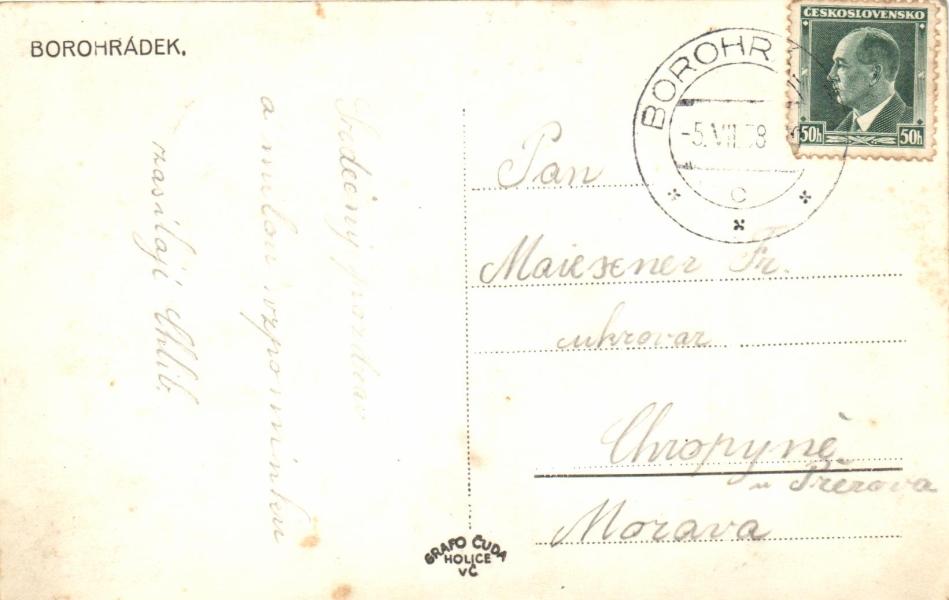 BOROHRÁDEK.
Srdečný pozdrav
a milou vzpomínku
zasílají
ČESKOSLOVENSKO
50h 50h
BOROHR
-5.VII.38
C
Pan
Maiexner Fr.
cukrovar
Chropyně
u Přerova
Morava
GRAFO ČUDA
HOLICE
VČ